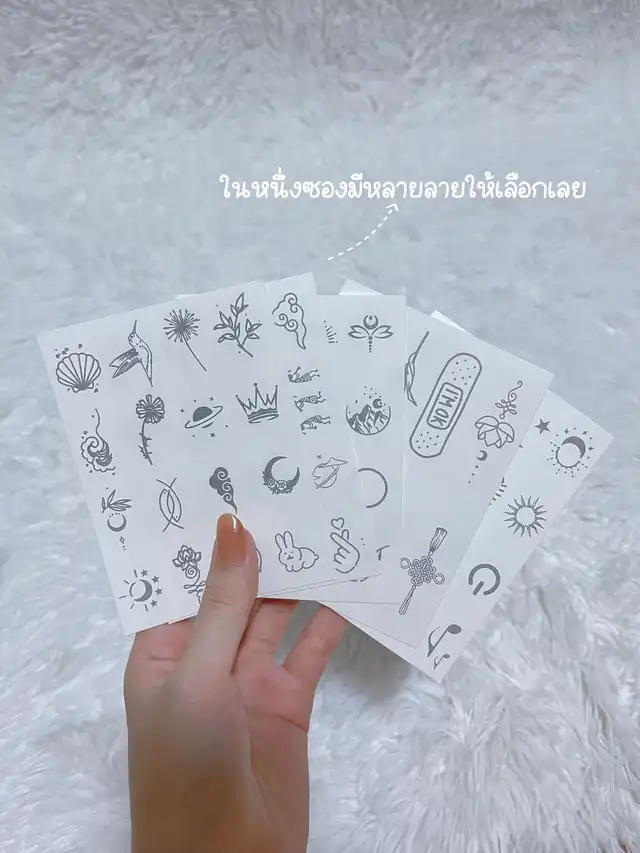 ในหนึ่งซองมีหลายลายให้เลือกเลย
I'M OK